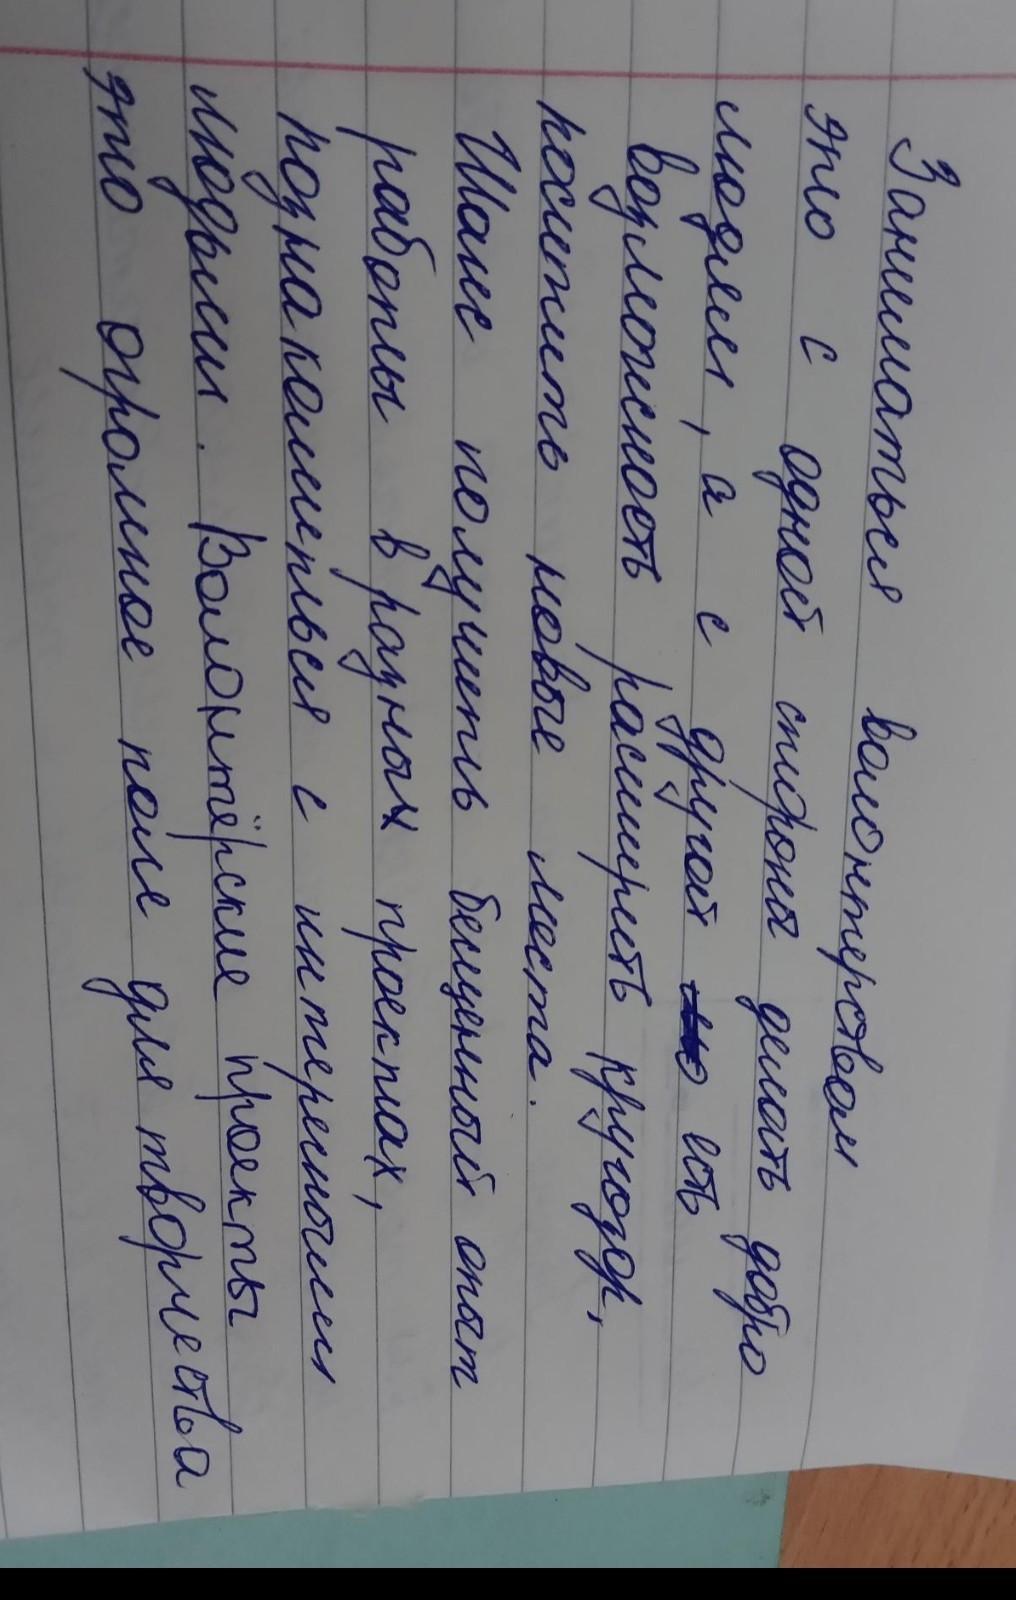 Заниматься волонтерством
это с одной стороны делать добро
людям, а с другой есть
возможность расширить кругозор,
посетить новые места.
Шанс получить бесценный опыт
работы в разных проектах,
познакомиться с интересными
людьми. Волонтёрские проекты
это огромное поле для творчества